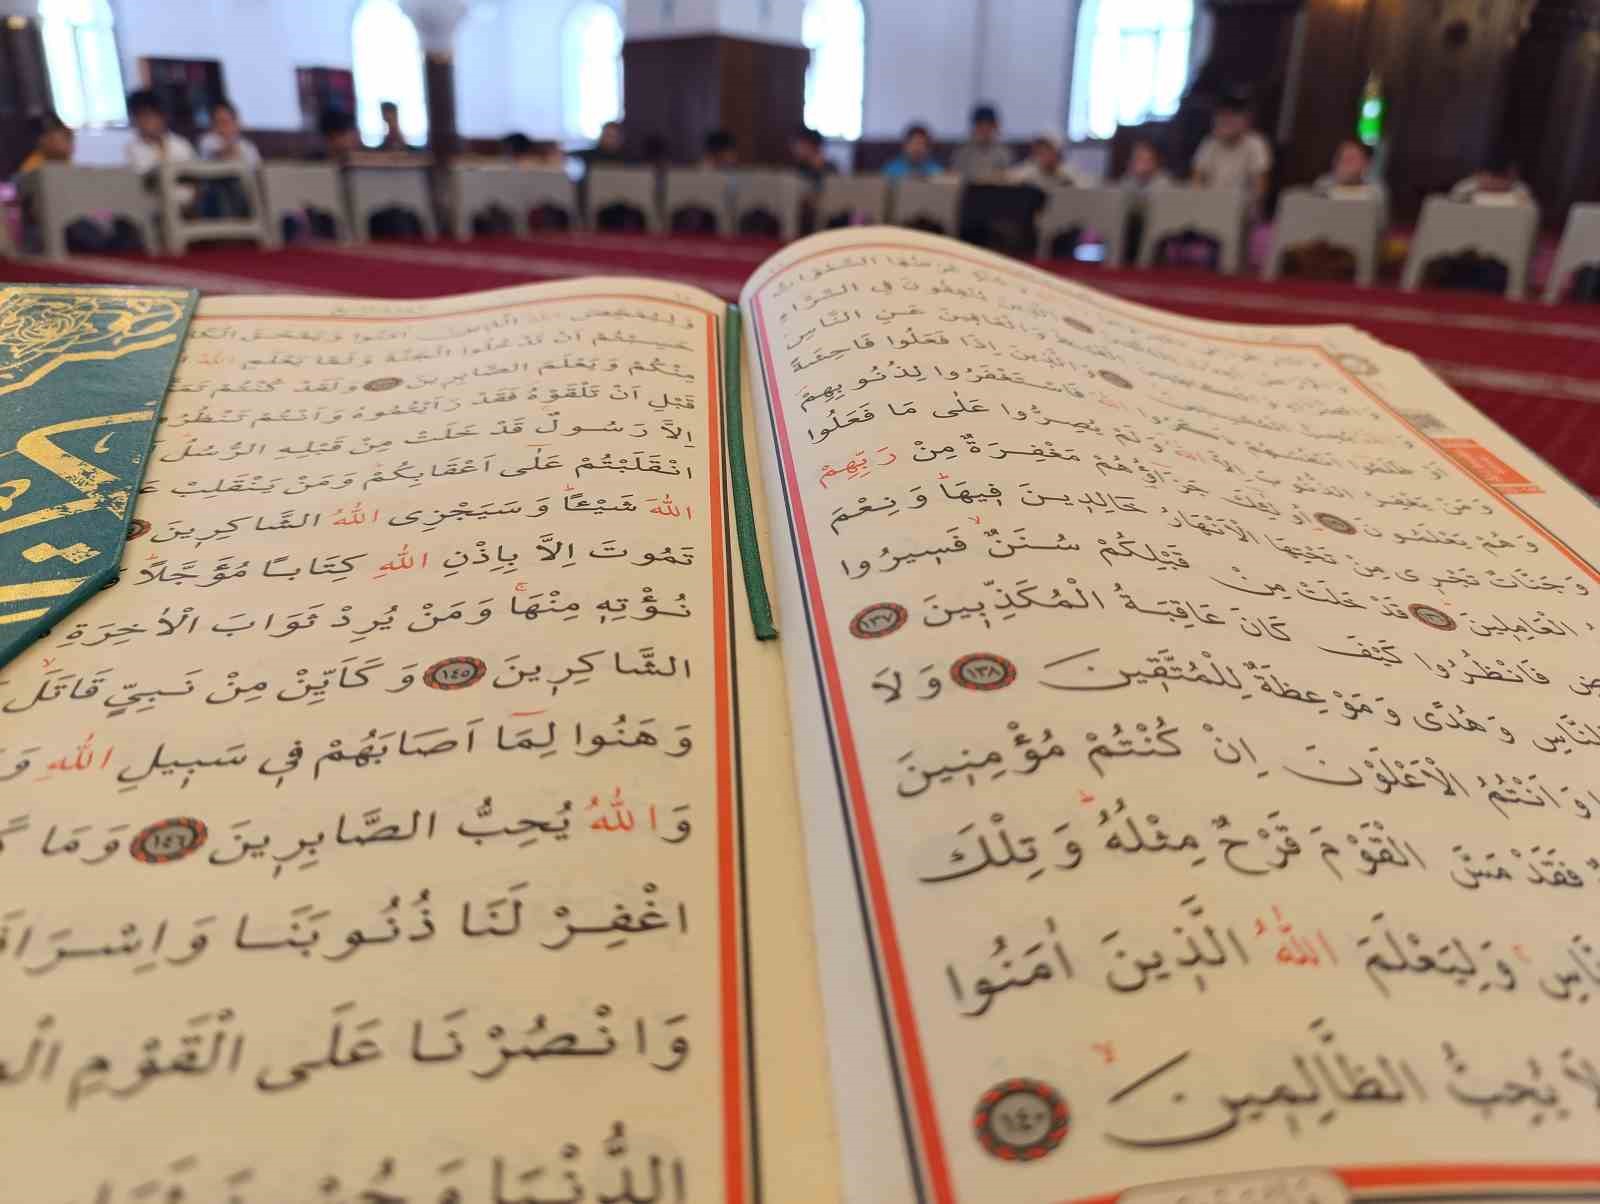 يُنْفِقُونَ فِي السَّرَّاءِ
وَالْعَافِينَ عَنِ النَّاسِ
وَالَّذِينَ اِذَا فَعَلُوا فَاحِشَةً
اَوْ ظَلَمُوا اَنْفُسَهُمْ فَاسْتَغْفَرُوا لِذُنُوبِهِمْ
وَمَنْ يَغْفِرُ الذُّنُوبَ اِلَّا اللّٰهُ وَلَمْ يُصِرُّوا عَلٰى مَا فَعَلُوا
وَهُمْ يَعْلَمُونَ اُولٰئِكَ جَزَاؤُهُمْ مَغْفِرَةٌ مِنْ رَبِّهِمْ
وَجَنَّاتٌ تَجْرِى مِنْ تَحْتِهَا الْاَنْهَارُ خَالِدِينَ فِيهَا وَنِعْمَ
الْعَامِلِينَ قَدْ خَلَتْ مِنْ قَبْلِكُمْ سُنَنٌ فَسِيرُوا
فَانْظُرُوا كَيْفَ كَانَ عَاقِبَةُ الْمُكَذِّبِينَ ١٣٧
لِلنَّاسِ وَهُدًى وَمَوْعِظَةٌ لِلْمُتَّقِينَ ١٣٨ وَلَا
وَاَنْتُمُ الْاَعْلَوْنَ اِنْ كُنْتُمْ مُؤْمِنِينَ
فَقَدْ مَسَّ الْقَوْمَ قَرْحٌ مِثْلُهُ وَتِلْكَ
وَلِيَعْلَمَ اللّٰهُ الَّذِينَ اٰمَنُوا
لَا يُحِبُّ الظَّالِمِينَ ١٤٠
حَسِبْتُمْ اَنْ تَدْخُلُوا الْجَنَّةَ وَلَمَّا يَعْلَمِ اللّٰهُ
مِنْكُمْ وَيَعْلَمَ الصَّابِرِينَ وَلَقَدْ كُنْتُمْ
قَبْلِ اَنْ تَلْقَوْهُ فَقَدْ رَاَيْتُمُوهُ وَاَنْتُمْ
اِلَّا رَسُولٌ قَدْ خَلَتْ مِنْ قَبْلِهِ الرُّسُلُ
انْقَلَبْتُمْ عَلٰى اَعْقَابِكُمْ وَمَنْ يَنْقَلِبْ
اللّٰهَ شَيْئًا وَسَيَجْزِى اللّٰهُ الشَّاكِرِينَ
تَمُوتَ اِلَّا بِاِذْنِ اللّٰهِ كِتَابًا مُؤَجَّلًا
نُؤْتِهِ مِنْهَا وَمَنْ يُرِدْ ثَوَابَ الْاٰخِرَةِ
الشَّاكِرِينَ ١٤٥ وَكَاَيِّنْ مِنْ نَبِيٍّ قَاتَلَ
وَهَنُوا لِمَا اَصَابَهُمْ فِي سَبِيلِ اللّٰهِ
وَاللّٰهُ يُحِبُّ الصَّابِرِينَ ١٤٦ وَمَا
اغْفِرْ لَنَا ذُنُوبَنَا
وَانْصُرْنَا عَلَى الْقَوْمِ
الدُّنْيَا